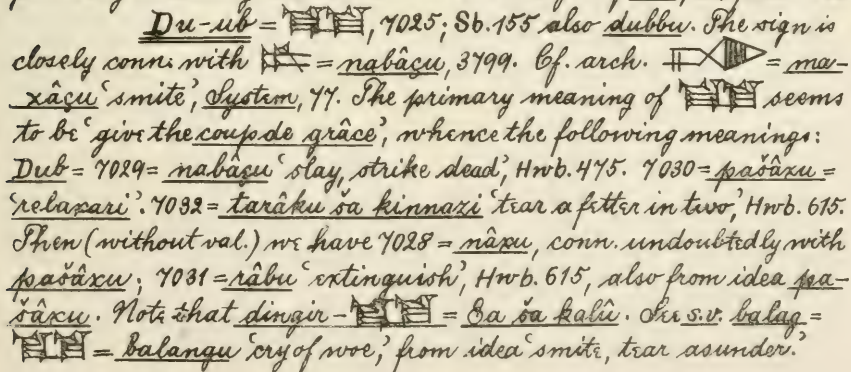 Du-ub = 𒁾, 7025; Sb. 155 also dubbu. The sign is
closely conn. with = nabâçu, 3799. Cf. arch. = ma-
xâçu 'smite', System, 77. The primary meaning of seems
to be 'give the coup de grâce', whence the following meanings:
Dub = 7029 = nabâçu 'slay, strike dead', Hwb. 475. 7030 = pašâxu =
'relaxari'. 7032 = tarâku ša kinnazi 'tear a fetter in two,' Hwb. 615.
Then (without val.) we have 7028 = nâxu, conn. undoubtedly with
pašâxu; 7031 = râbu 'extinguish', Hwb. 615, also from idea pa-
šâxu. Note that dingir- = Ea ša kalû. See s.v. balag =
= balangu 'cry of woe,' from idea 'smite, tear asunder.'